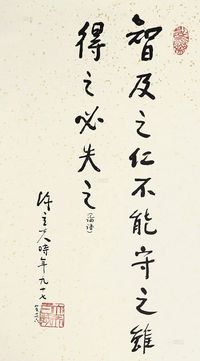 智及之仁不能守之雖
得之必失之（論語）
陳立夫時年九十七